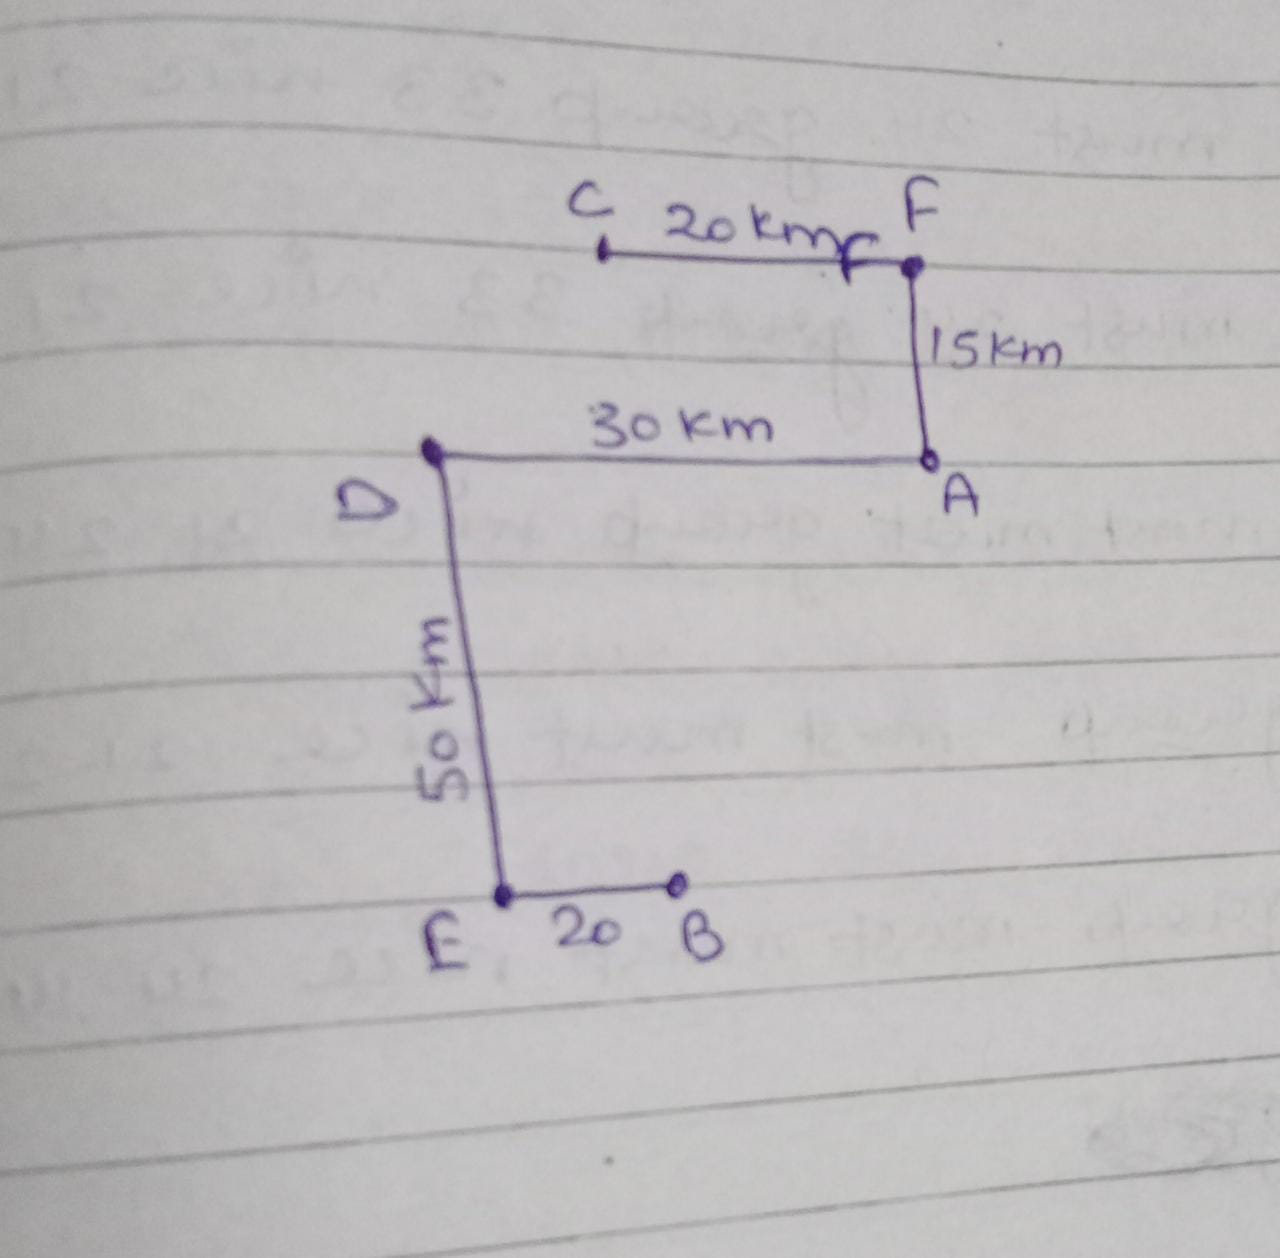 C 20 km F
15 km
30 km
D A
50 km
E 20 B